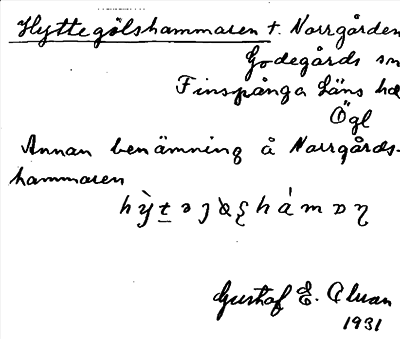 Hyttegölshammaren t. Norrgården
Godegårds sn
Finspånga läns hd
Ögl
Annan benämning å Norrgårds-
hammaren
Gustaf E. Alvan
1931